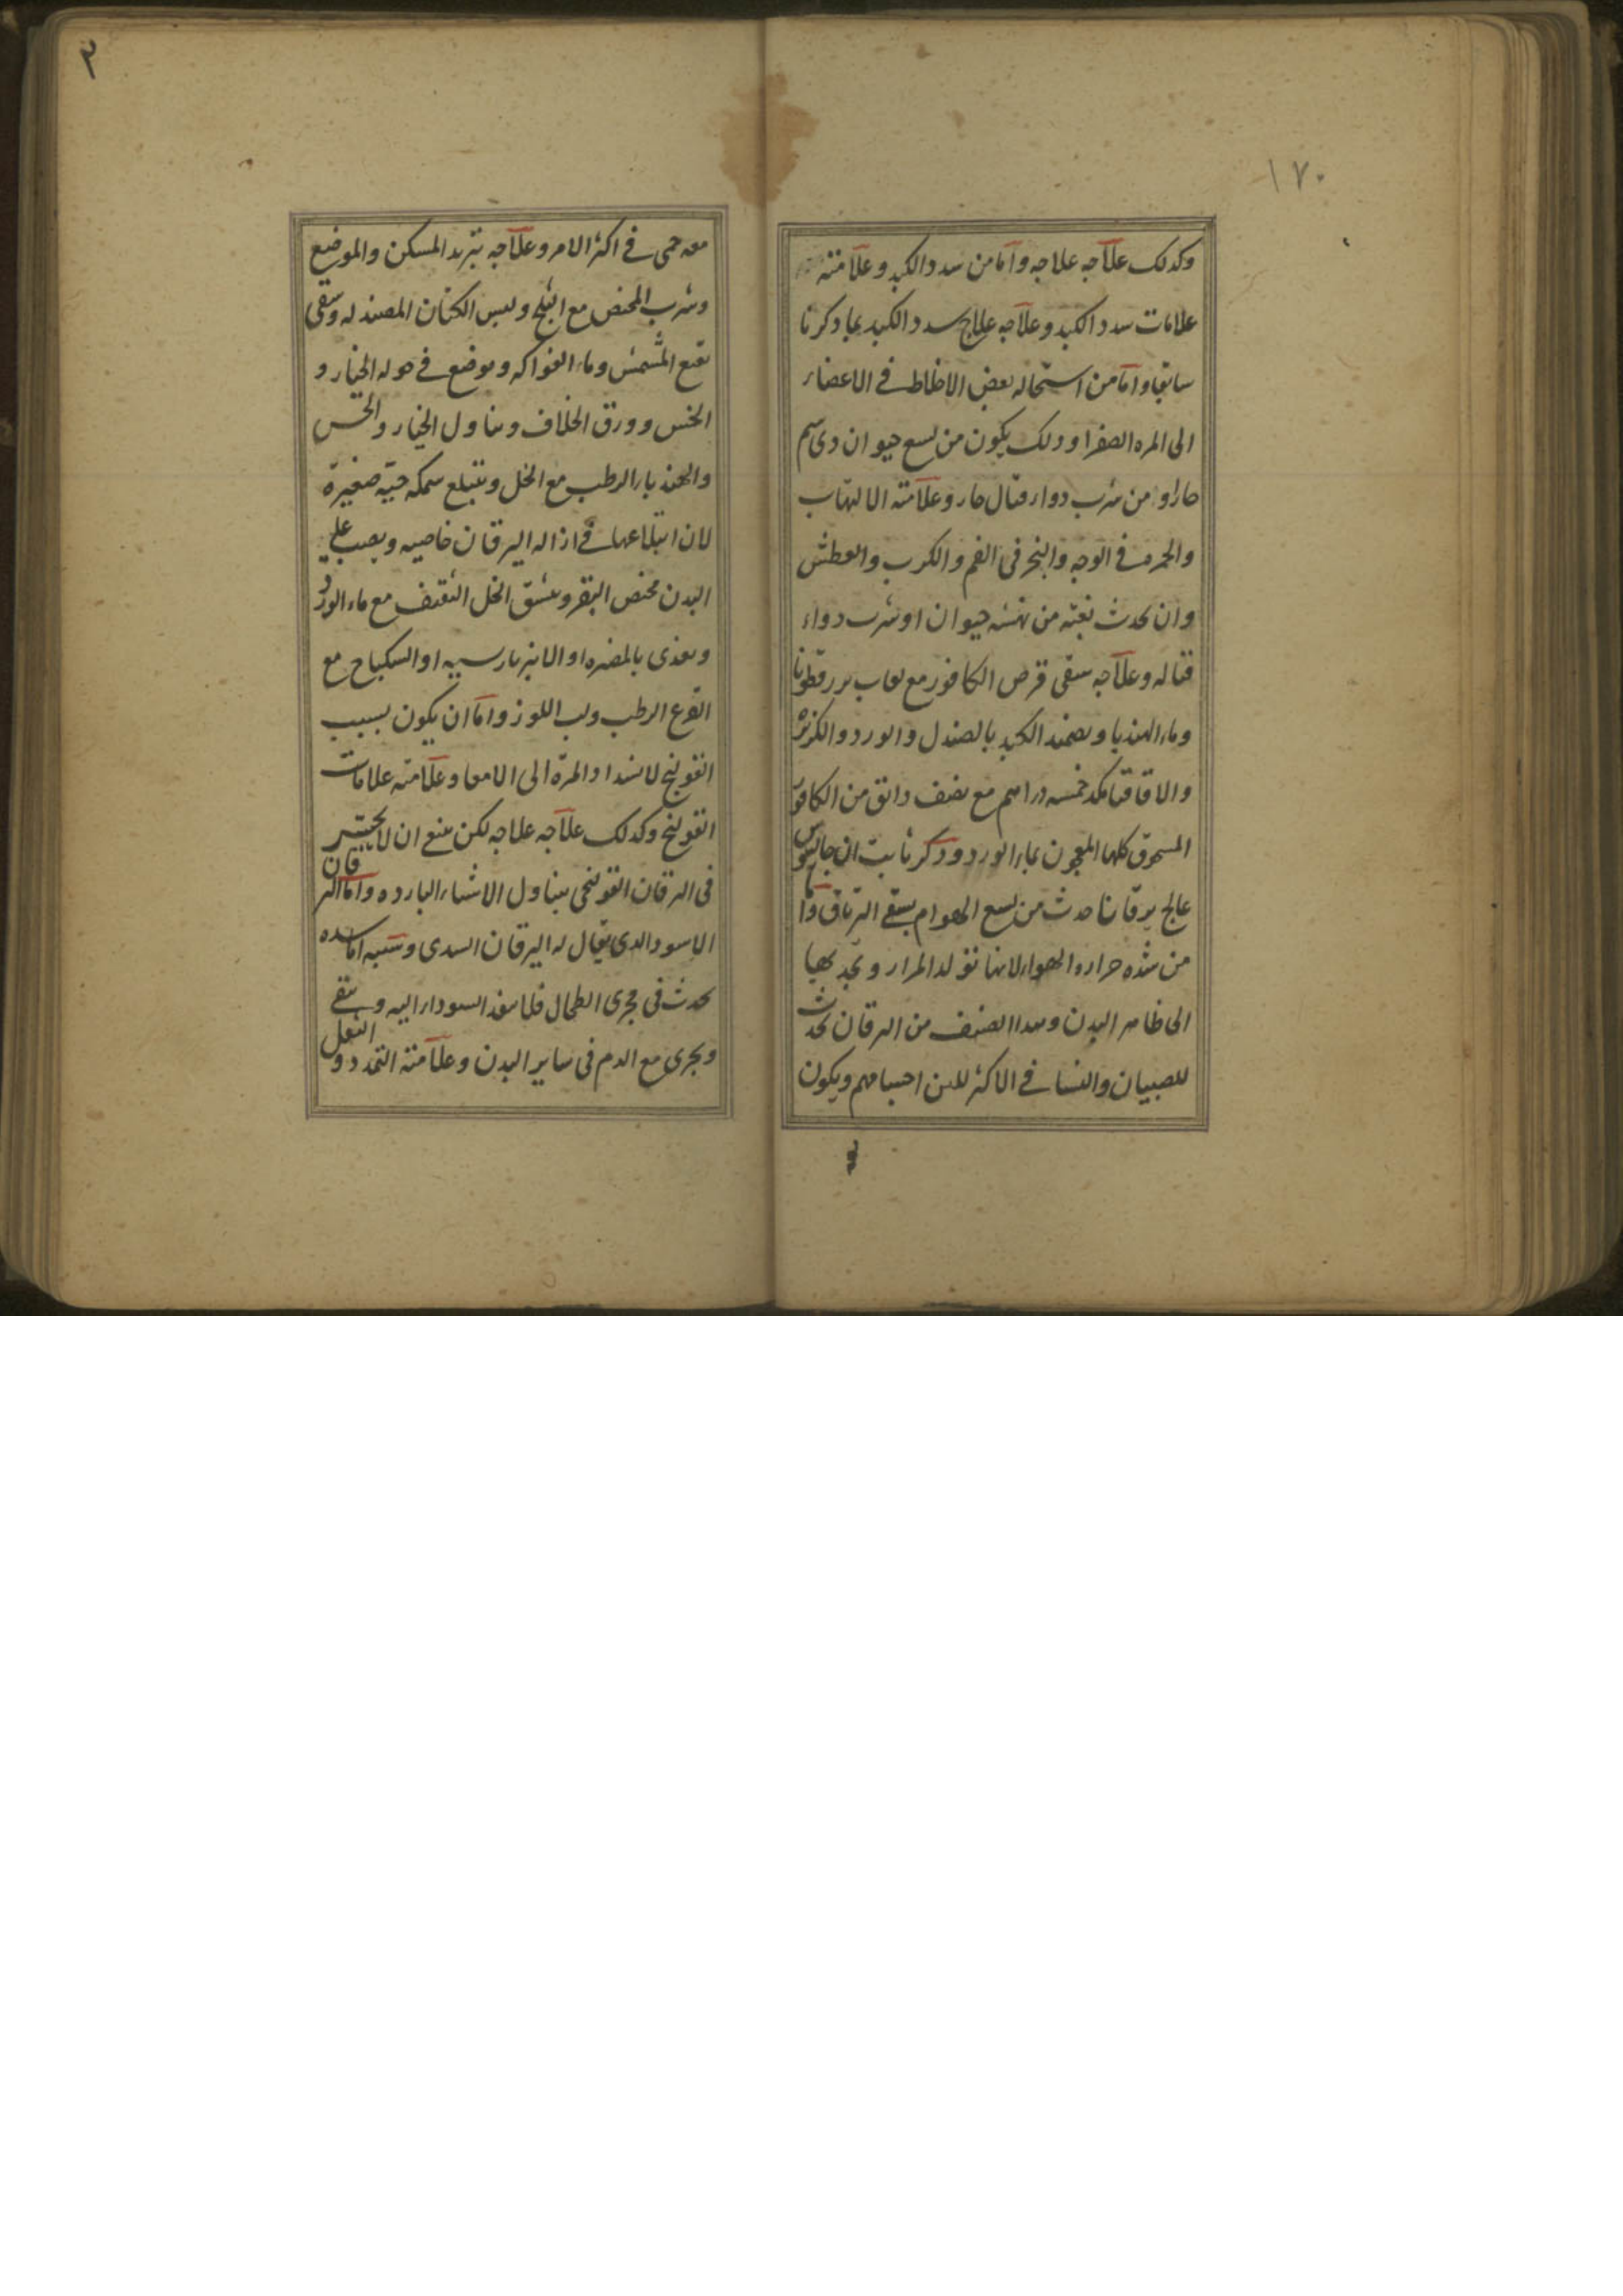 ١٧٠
وكدلك علاجه علاجه واما من سدد الكبد وعلامته
علامات سدد الكبد وعلاجه علاج سدد الكبد بما دكرنا
سابقا واما من استحاله بعض الاخلاط فى الاعضاء
الى المره الصفرا ودلك يكون من لسع حيوان دى سم
حار او من شرب دواء قتال حار وعلامته الالتهاب
والحمره فى الوجه والبخر فى الفم والكرب والعطش
وان يحدث بغته من نهشه حيوان او شرب دواء
قتاله وعلاجه سقى قرص الكافور مع لعاب بزرقطونا
وماء الهندبا وىضمد الكبد بالصندل والورد والكزبره
والاقاقيا مكد خمسه دراهم مع نصف دانق من الكافور
المسحوق كلها المعجون بماء الورد ودكر ثابت ان جالينوس
عالج يرقانا حدث من لسع الهوام بسقى الترياق واما
من شده حراره الهواء لانها تولد المرار وتجدبها
الى ظاهر البدن وهدا الصنف من اليرقان يحدث
للصبيان والنسا فى الاكثر للين اجسامهم ويكون
معه
٣
معه حمى فى اكثر الامر وعلاجه تبريد المسكن والموضع
وشرب المخض مع الثلج ولبس الكتان المصندله وسقى
نقع المشمش وماء الفواكه ويوضع فى حوله الخيار و
الخس وورق الخلاف وىناول الخيار والخس
والهندباء الرطب مع الخل ويبتلع سمكه حيّه صغيرة
لان ابتلاعها فى ازاله اليرقان خاصيه ويصب على
البدن مخض البقر وينشق الخل الثقيف مع ماء الورد
وىغذى بالمضره او الانبرباريسيه او السكباج مع
القرع الرطب ولب اللوز واما ان يكون بسبب
القولنج لانسداد المرة الى الامعا وعلامته علامات
القولنج وكدلك علاجه علاجه لكن ينبع ان لا يجتسر
فى اليرقان القولنجى بتناول الاشياء البارده واما اليرقان
الاسود الدى يقال له اليرقان السددى وسببه اما سده
يحدث فى مجرى الطحال فلا ىنفذ السوداء اليه ويبقى
ويجرى مع الدم فى ساير البدن وعلامته التمدد والثقل